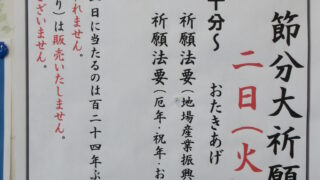 節分大祈願
二日(火
十分〜
おたきあげ
祈願法要(地場産業振興
祈願法要(厄年・祝年・お
日に当たるのは百二十四年ぶ
れません。
り)は販売いたしません。
ざいません。